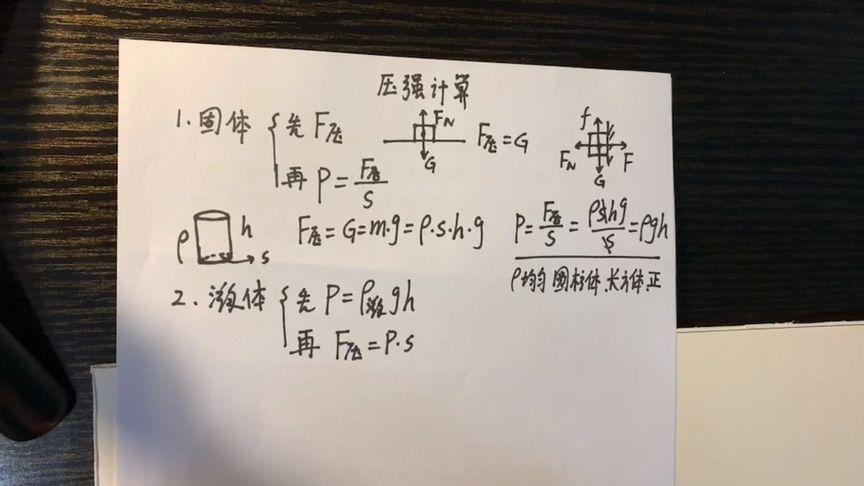 压强计算
1.固体 { 先 F压 FN G F压=G f FN F G
再 P=F压/S
ρ h s F压=G=m·g=ρ·s·h·g P=F压/S=ρshg/s=ρgh
ρ均匀 圆柱体.长方体.正
2.液体 { 先 P=ρ液gh
再 F压=P·s